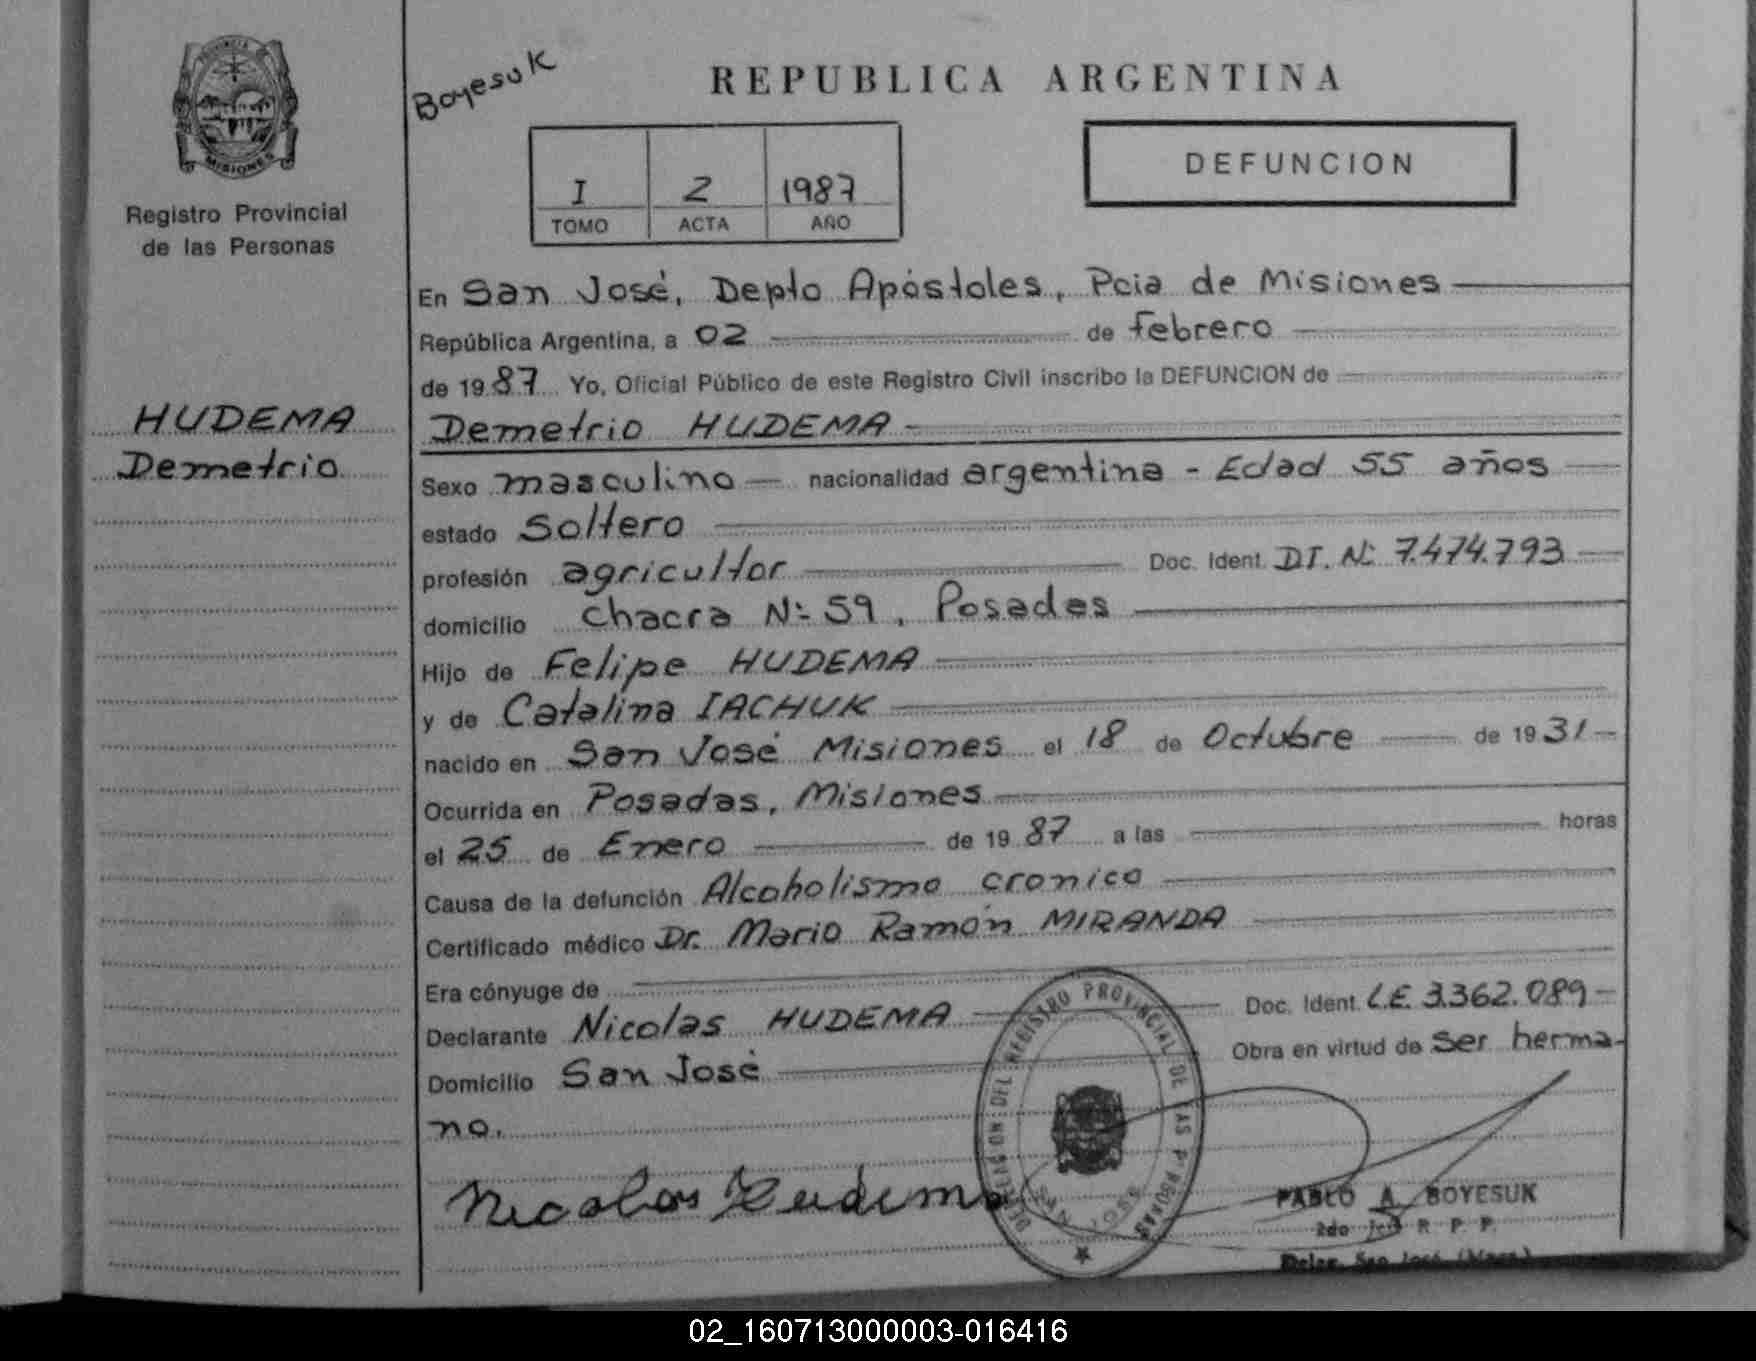 PROVINCIA DE
MISIONES
Registro Provincial
de las Personas
HUDEMA
Demetrio
Boyesuk
REPUBLICA ARGENTINA
I 2 1987
TOMO ACTA AÑO
DEFUNCION
En San José, Depto Apóstoles, Pcia de Misiones
República Argentina, a 02 de febrero
de 1987 Yo, Oficial Público de este Registro Civil inscribo la DEFUNCION de
Demetrio HUDEMA
Sexo masculino nacionalidad argentina - Edad 55 años
estado Soltero
profesión agricultor Doc. Ident. DI. Nº 7.474.793
domicilio Chacra Nº 59, Posadas
Hijo de Felipe HUDEMA
y de Catalina IACHUK
nacido en San José Misiones el 18 de Octubre de 1931
Ocurrida en Posadas, Misiones
el 25 de Enero de 1987 a las horas
Causa de la defunción Alcoholismo cronico
Certificado médico Dr. Mario Ramón MIRANDA
Era cónyuge de
Declarante Nicolas HUDEMA Doc. Ident. L.E. 3.362.089
Domicilio San José Obra en virtud de ser herma-
no.
Nicolas Hudema
DEL REGISTRO PROVINCIAL DE LAS
PABLO A. BOYESUK
2do R. P. P.
San José
02_160713000003-016416